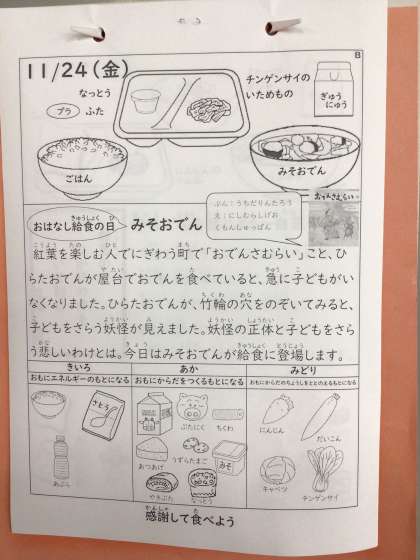 8
11/24（金）
なっとう
プラ ふた
チンゲンサイの
いためもの
ぎゅう
にゅう
ごはん
みそおでん
おはなし給食の日
みそおでん
ぶん：うちだりんたろう
え：にしむらしげお
くもんしゅっぱん
おでんさむらい
紅葉を楽しむ人でにぎわう町で「おでんさむらい」こと、ひ
らたおでんが屋台でおでんを食べていると、急に子どもがい
なくなりました。ひらたおでんが、竹輪の穴をのぞいてみると、
子どもをさらう妖怪が見えました。妖怪の正体と子どもをさら
う悲しいわけとは。今日はみそおでんが給食に登場します。
きいろ
おもにエネルギーのもとになる
さとう
あぶら
あか
おもにからだをつくるもとになる
ぶたにく
ちくわ
あつあげ
うずらたまご
みそ
やきぶた
なっとう
みどり
おもにからだのちょうしをととのえるもとになる
にんじん
だいこん
キャベツ
チンゲンサイ
感謝して食べよう